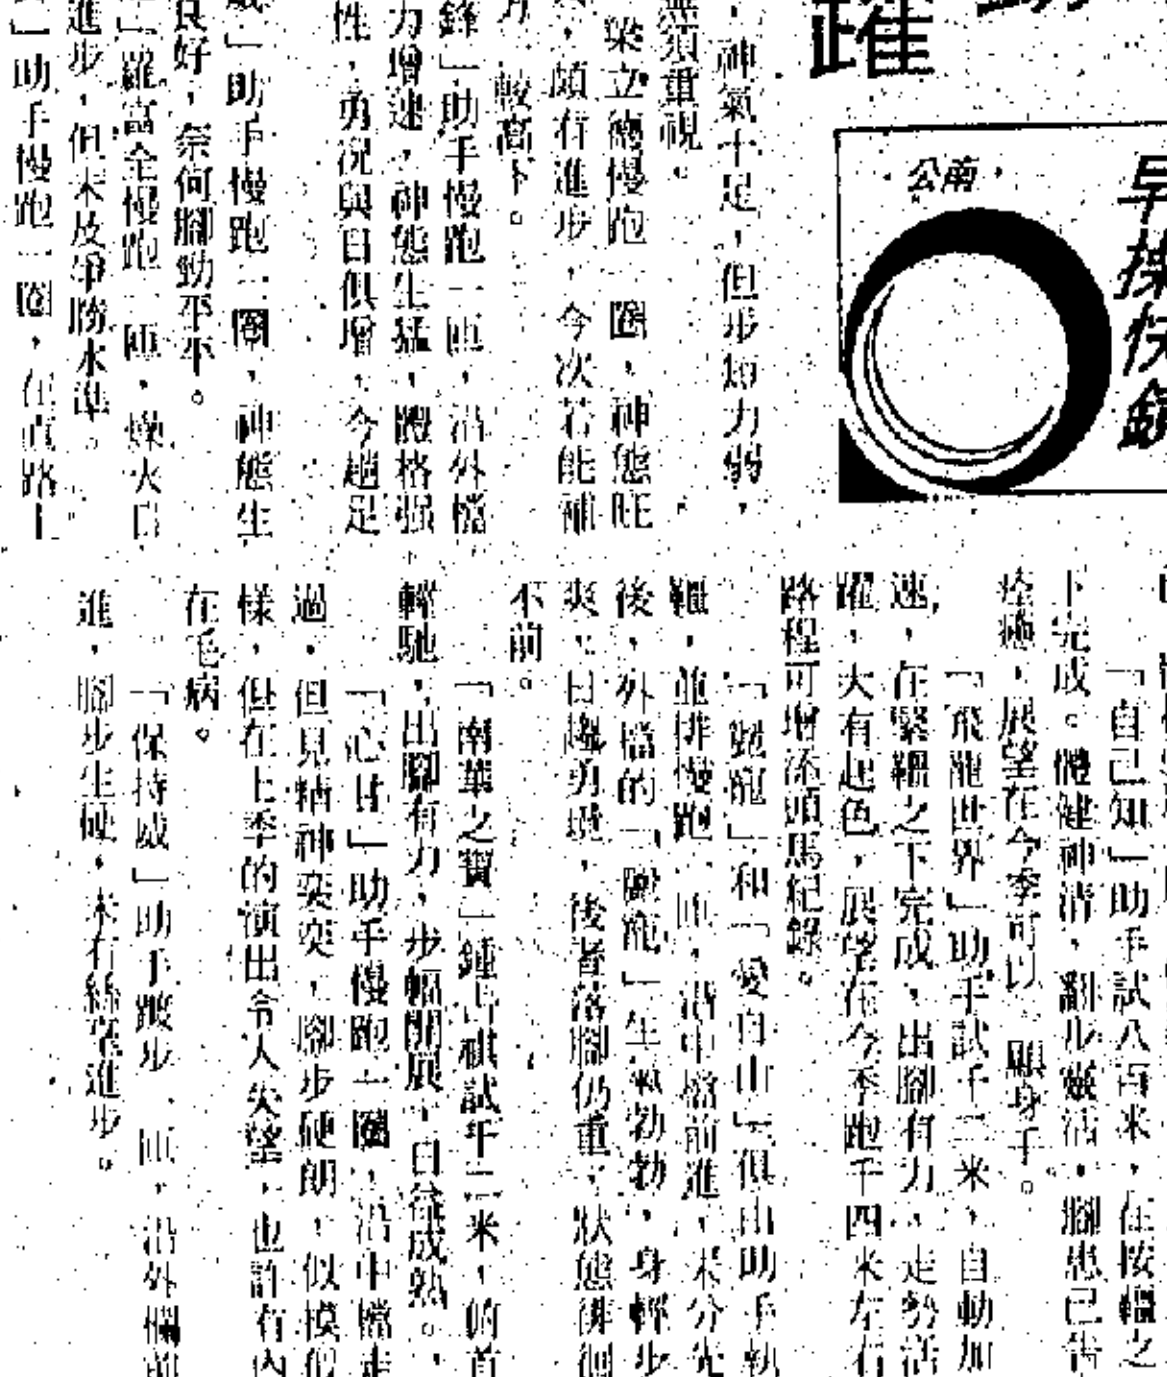 躍
早操快
公南
，神氣十足，但步短力弱，
無須重視。
梁立德慢跑一圈，神態旺
，頗有進步，今次若能補
較高下。
鋒」助手慢跑一匝，沿外檔
力增速，神態生猛，體格强
性，勇況與日俱增，今趟足
威」助手慢跑一圈，神態生
良好，奈何腳勁平平。
」羅富全慢跑一匝，燥火
進步，但未及爭勝水準。
」助手慢跑一圈，在直路上
「自己知」助手試八百米，在按韁之
下完成。體健神清，翻步靈活，腳患已告
痊癒，展望在今季可以一顯身手。
「飛龍世界」助手試千二米，自動加
速，在緊韁之下完成，出腳有力，走勢活
躍，大有起色，展望在今季跑千四米左右
路程可增添頭馬紀錄。
龍」和「愛自由」俱由助手執
韁，並排慢跑一匝，沿中檔前進，未分先
後，外檔的「龍」生氣勃勃，身輕步
爽，日趨勇猛，後者落腳仍重，狀態徘徊
不前。
「南華之寶」鍾占祺試千二米，的首
輕馳，出腳有力，步幅開展，日漸成熟。
「心甘」助手慢跑一圈，沿中檔走
過，但見精神奕奕，腳步硬朗，似模似
樣，但在上季的演出令人失望，也許有內
在毛病。
「保持威」助手踱步一匝，沿外欄前
進，腳步生硬，未有絲毫進步。